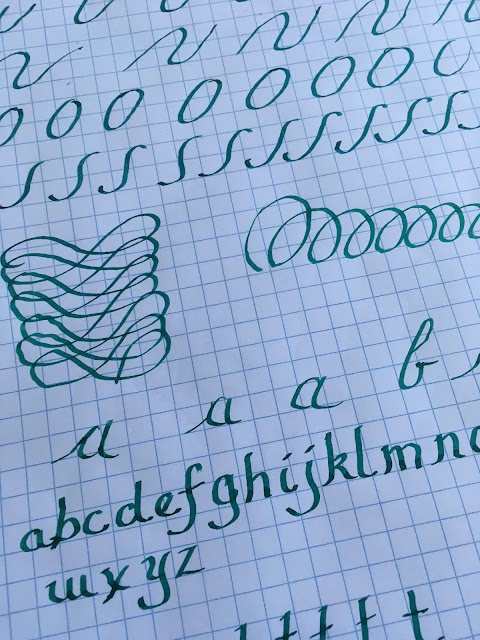 a a a b
abcdefghijklmn
wxyz
t t t t